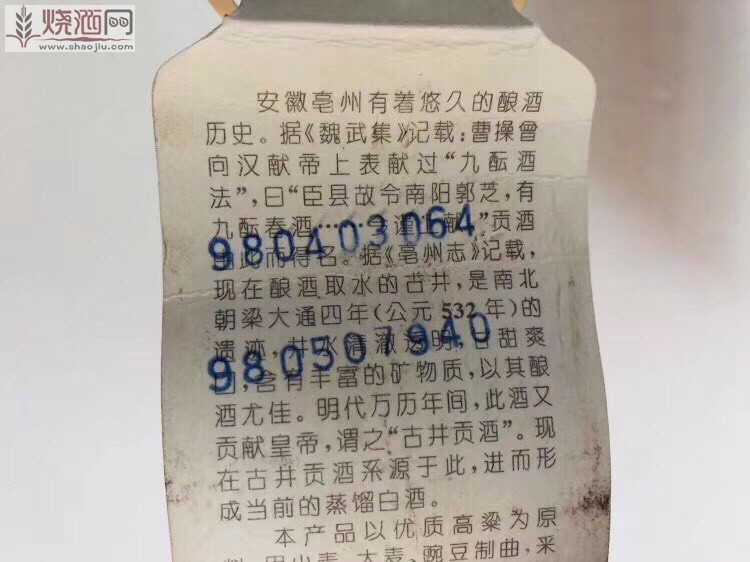 烧酒网
www.shaojiu.com
安徽亳州有着悠久的酿酒
历史。据《魏武集》记载:曹操曾
向汉献帝上表献过“九酝酒
法”,曰“臣县故令南阳郭芝,有
九酝春酒……献”贡酒
980403064
此而得名。据《亳州志》记载,
现在酿酒取水的古井,是南北
朝梁大通四年(公元532年)的
遗迹,井水清澈透明,甘甜爽
980507940
含有丰富的矿物质,以其酿
酒尤佳。明代万历年间,此酒又
贡献皇帝,谓之“古井贡酒”。现
在古井贡酒系源于此,进而形
成当前的蒸馏白酒。
本产品以优质高粱为原
料,用小麦、大麦、豌豆制曲,采